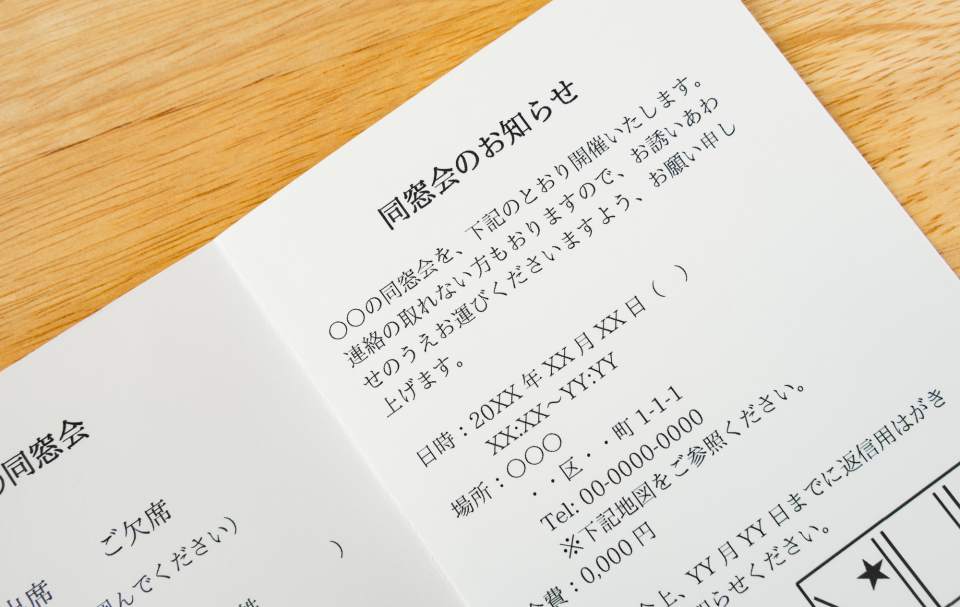 の同窓会
ご欠席
出席
んでください）
）
同窓会のお知らせ
〇〇の同窓会を、下記のとおり開催いたします。
連絡の取れない方もおりますので、お誘いあわ
せのうえお運びくださいますよう、お願い申し
上げます。
日時：20XX 年 XX 月 XX 日（　）
XX:XX～YY:YY
場所：〇〇〇
・・区・・町 1-1-1
Tel: 00-0000-0000
※下記地図をご参照ください。
会費：0,000 円
上、YY 月 YY 日までに返信用はがき
知らせください。
★